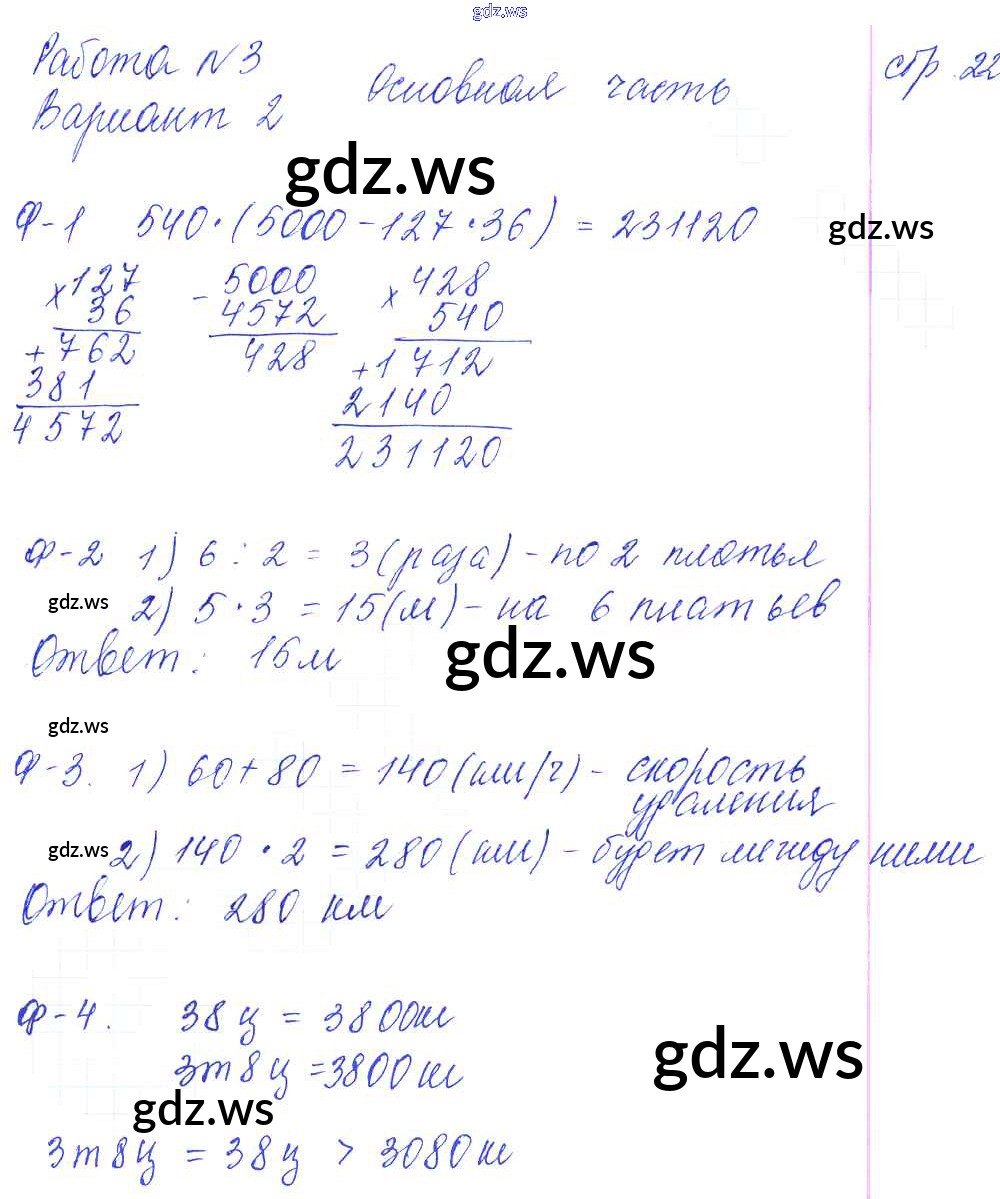 gdz.ws
Работа №3
Основная часть
стр. 22
Вариант 2
gdz.ws
Ф-1 540·(5000-127·36) = 231120
gdz.ws
×127
36
+762
381
4572
-5000
4572
428
×428
540
+1712
2140
231120
Ф-2 1) 6 : 2 = 3 (раза) - по 2 платья
gdz.ws
2) 5·3 = 15(м) - на 6 платьев
Ответ: 15м
gdz.ws
gdz.ws
Ф-3. 1) 60+80 = 140(км/ч) - скорость
удаления
gdz.ws
2) 140·2 = 280(км) - будет между ними
Ответ: 280 км
Ф-4. 38ц = 3800кг
3т8ц = 3800кг
gdz.ws
gdz.ws
3т8ц = 38ц > 3080кг